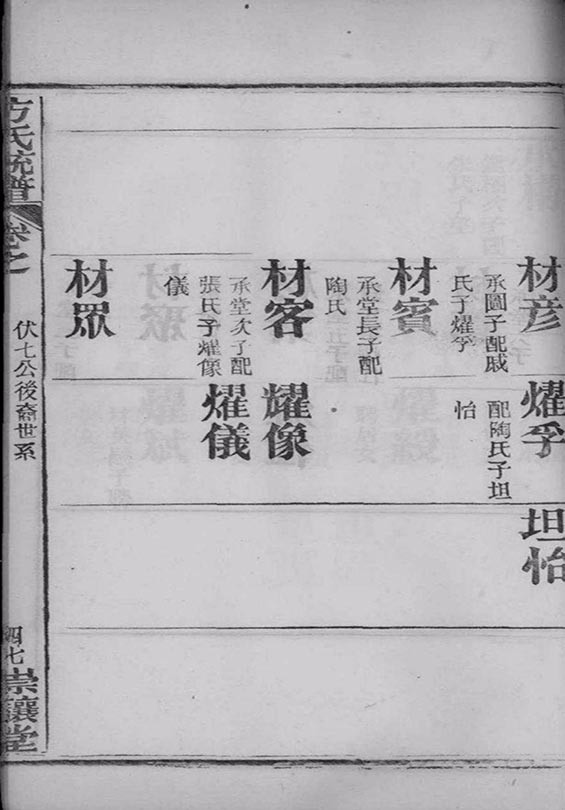 材彦
承圖子配戚
氏子耀孚
耀孚
配陶氏子坦
怡
坦怡
材賓
承堂長子配
陶氏
材客
承堂次子配
張氏子耀像
儀
耀像
耀儀
材眾
方氏統譜
卷之
伏七公後裔世系
四七
崇讓堂